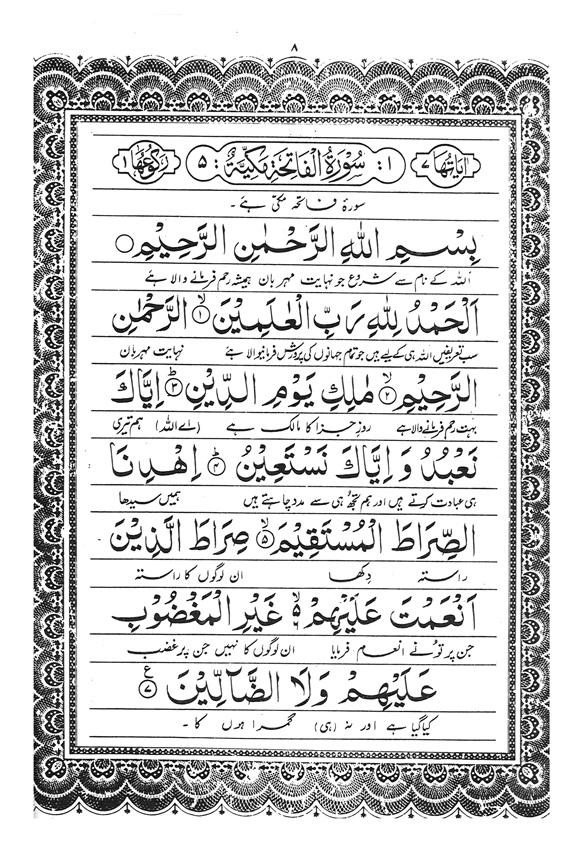 ۸
اٰیَاتُهَا ۷ ۱: سُوْرَةُ الْفَاتِحَةِ مَكِّیَّةٌ: ۵ رُكُوْعُهَا ۱
سورۂ فاتحہ مکی ہے ۔
بِسْمِ اللّٰهِ الرَّحْمٰنِ الرَّحِیْمِ ○
اللہ کے نام سے شروع جو نہایت مہربان ہمیشہ رحم فرمانے والا ہے
اَلْحَمْدُ لِلّٰهِ رَبِّ الْعٰلَمِیْنَ ۙ۱ الرَّحْمٰنِ
سب تعریفیں اللہ ہی کے لیے ہیں جو تمام جہانوں کی پرورش فرمانیوالا ہے نہایت مہربان
الرَّحِیْمِ ۙ۲ مٰلِكِ یَوْمِ الدِّیْنِ ؕ۳ اِیَّاكَ
بہت رحم فرمانے والا ہے روزِ جزا کا مالک ہے (اے اللہ) ہم تیری
نَعْبُدُ وَ اِیَّاكَ نَسْتَعِیْنُ ؕ۴ اِهْدِنَا
ہی عبادت کرتے ہیں اور ہم تجھ ہی سے مدد چاہتے ہیں ہمیں سیدھا
الصِّرَاطَ الْمُسْتَقِیْمَ ۙ۵ صِرَاطَ الَّذِیْنَ
راستہ دکھا ان لوگوں کا راستہ
اَنْعَمْتَ عَلَیْهِمْ ۙ۬۶ غَیْرِ الْمَغْضُوْبِ
جن پر تو نے انعام فرمایا ان لوگوں کا نہیں جن پر غضب
عَلَیْهِمْ وَلَا الضَّآلِّیْنَ ۠۷ ع
کیا گیا ہے اور نہ (ہی) گمراہوں کا ۔